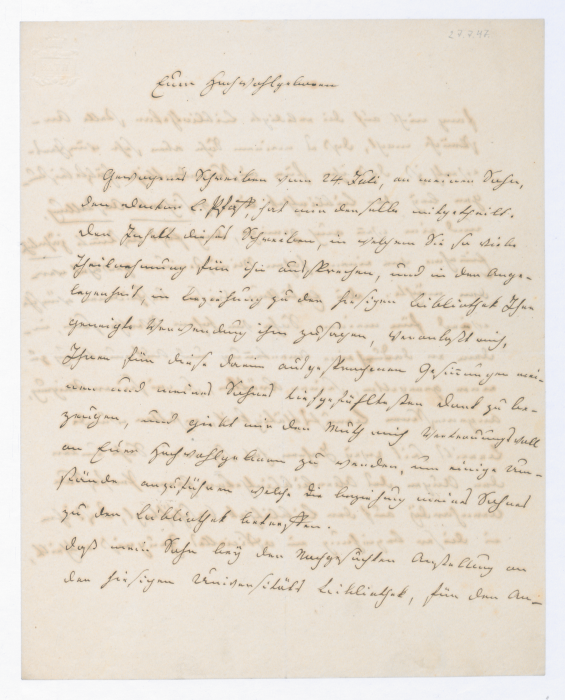 27.7.47.
Euer Hochwohlgeboren
Gewogenes Schreiben vom 24 Juli, an meinen Sohn,
den Doctor E. Pfaff, hat mir derselbe mitgetheilt.
Der Inhalt dieses Schreiben, in welchem Sie so viele
Theilnehmung für ihn aussprechen, und in der Ange-
legenheit, in beziehung zu der hiesigen Bibliothek Ihre
geneigte Verwendung ihm zusagen, veranlaßt mich,
Ihnen für diese darin ausgesprochenen Gesinnungen mei-
nen und meines Sohnes tiefgefühltesten Dank zu be-
zeugen, und giebt mir den Muth mich vertrauungsvoll
an Euer Hochwohlgeboren zu wenden, um einige Um-
stände anzuführen welche die beziehung meines Sohnes
zu der Bibliothek betreffen.
Daß mein Sohn bey der nachgesuchten Anstellung an
der hiesigen Universitäts Bibliothek, für den An-